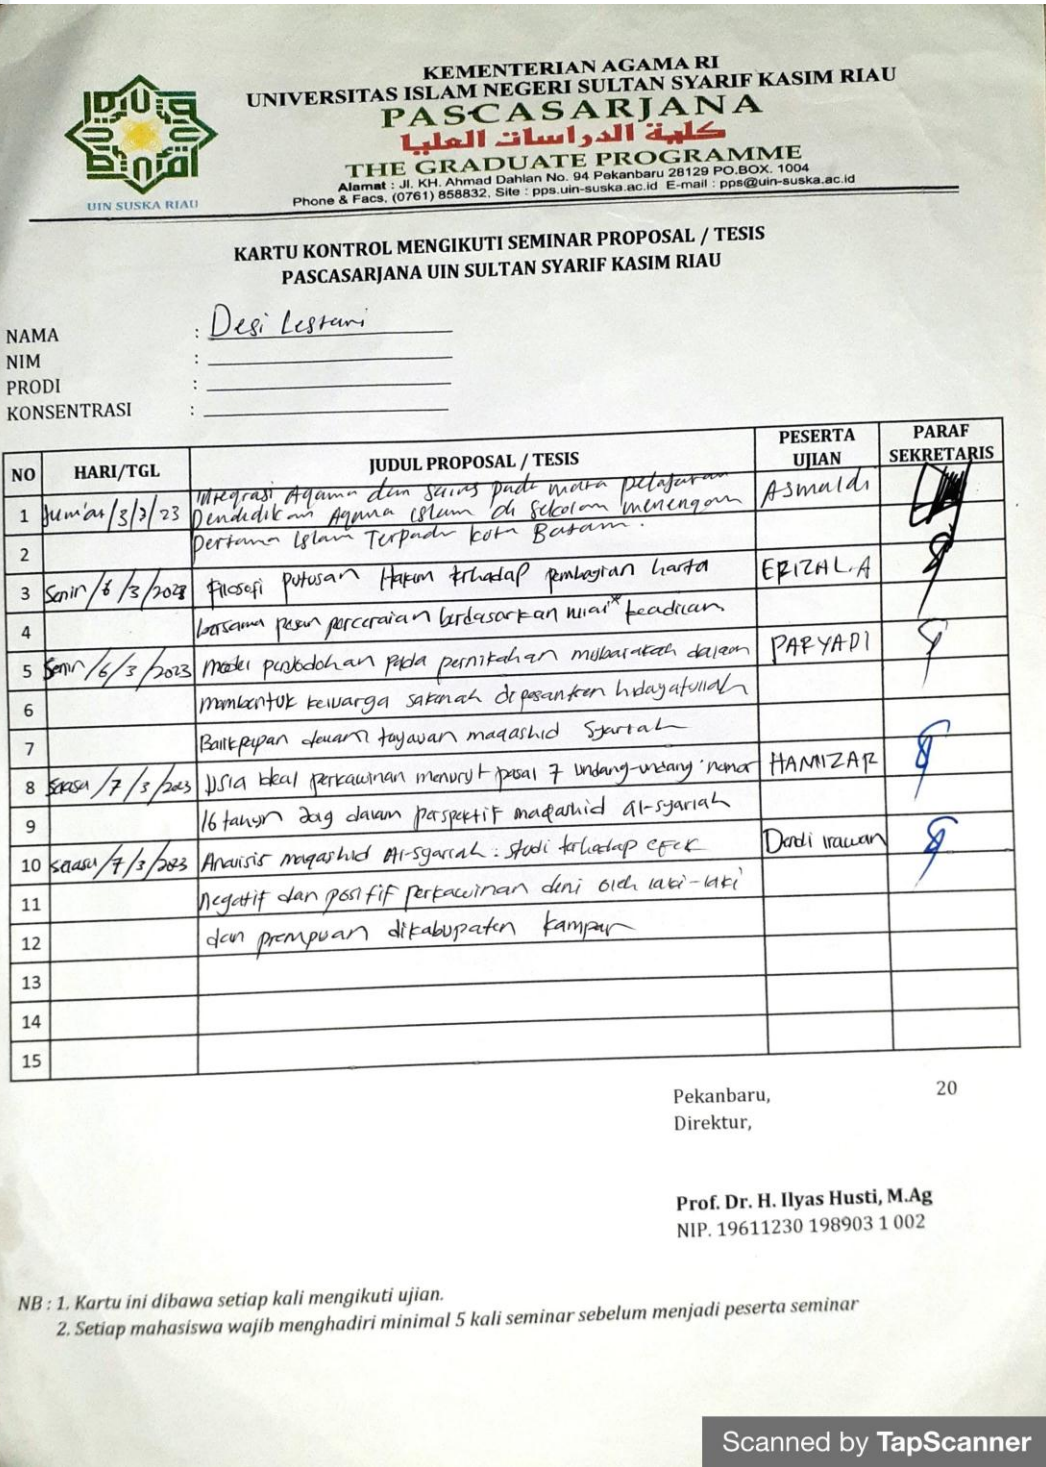 KEMENTERIAN AGAMA RI
UNIVERSITAS ISLAM NEGERI SULTAN SYARIF KASIM RIAU
PASCASARJANA
كلية الدراسات العليا
THE GRADUATE PROGRAMME
Alamat : Jl. KH. Ahmad Dahlan No. 94 Pekanbaru 28129 PO.BOX. 1004
Phone & Facs, (0761) 858832, Site : pps.uin-suska.ac.id E-mail : pps@uin-suska.ac.id
UIN SUSKA RIAU
KARTU KONTROL MENGIKUTI SEMINAR PROPOSAL / TESIS
PASCASARJANA UIN SULTAN SYARIF KASIM RIAU
NAMA : Desi Lestari
NIM :
PRODI :
KONSENTRASI :
NO HARI/TGL JUDUL PROPOSAL / TESIS PESERTA UJIAN PARAF SEKRETARIS
1 Jum'at /3/3/23 Integrasi Agama dan Sains pada mata pelajaran Asmaldi
Pendidikan Agama Islam di sekolah menengah
2 pertama Islam Terpadu Kota Batam.
3 Senin /6/3/2023 Filosofi putusan Hakim terhadap pembagian harta ERIZAL.A
4 bersama perceraian berdasarkan nilai* keadilan
5 Senin /6/3/2023 model perjodohan pada pernikahan mubarakah dalam PARYADI
6 membentuk keluarga sakinah dipesantren hidayatullah
7 Balikpapan dalam tinjauan maqashid Syariah
8 Selasa /7/3/2023 Usia ideal perkawinan menurut pasal 7 undang-undang nomor HAMIZAR
9 16 tahun 2019 dalam perspektif maqashid al-syariah
10 Selasa /7/3/2023 Analisis maqashid Al-syariah : studi terhadap efek Dendi irawan
11 negatif dan positif perkawinan dini oleh laki-laki
12 dan prempuan dikabupaten Kampar
13
14
15
Pekanbaru, 20
Direktur,
Prof. Dr. H. Ilyas Husti, M.Ag
NIP. 19611230 198903 1 002
NB : 1. Kartu ini dibawa setiap kali mengikuti ujian.
2. Setiap mahasiswa wajib menghadiri minimal 5 kali seminar sebelum menjadi peserta seminar
Scanned by TapScanner